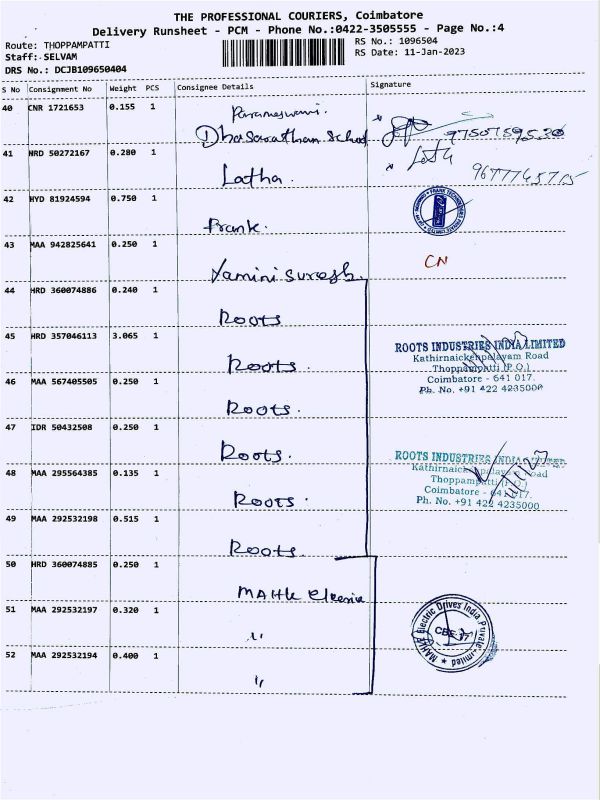 THE PROFESSIONAL COURIERS, Coimbatore
Delivery Runsheet - PCM - Phone No.:0422-3505555 - Page No.:4
Route: THOPPAMPATTI
RS No.: 1096504
Staff: SELVAM
RS Date: 11-Jan-2023
DRS No.: DCJB109650404
S No Consignment No Weight PCS Consignee Details Signature
40 CNR 1721653 0.155 1 Parameswari.
Dhasarathan School 9750759530
41 NRD 50272167 0.280 1 Latha
Latha. 9677745715
42 HYD 81924594 0.750 1
Frank.
43 MAA 942825641 0.250 1 CN
Yamini Suresh.
44 HRD 360074886 0.240 1
Roots
45 HRD 357046113 3.065 1 ROOTS INDUSTRIES INDIA LIMITED
Kathirnaickenpalayam Road
Roots. Thoppampatti (P.O.)
46 MAA 567405505 0.250 1 Coimbatore - 641 017.
Ph. No. +91 422 4235000
Roots.
47 IDR 50432508 0.250 1
Roots. ROOTS INDUSTRIES INDIA LIMITED
48 MAA 295564385 0.135 1 Kathirnaickenpalayam Road
Thoppampatti (P.O.)
Coimbatore - 641 017.
Roots. Ph. No. +91 422 4235000
49 MAA 292532198 0.515 1
Roots.
50 HRD 360074885 0.250 1
MAHle Electric
51 MAA 292532197 0.320 1 MAHLE Electric Drives India Private Limited
CBE-17
"
52 MAA 292532194 0.400 1
"